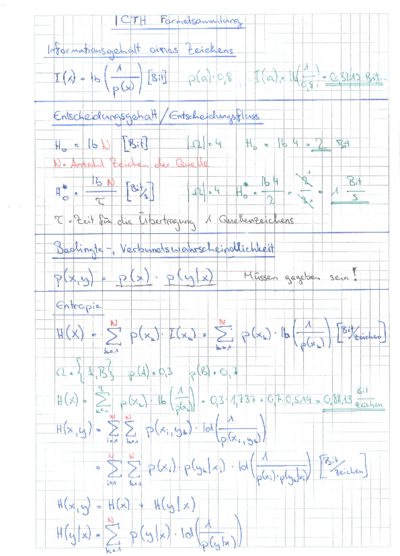 ICTH Formelsammlung
Informationsgehalt eines Zeichens
I(x) = lb (1/p(x)) [Bit]   p(a) = 0,8   I(a) = lb(1/0,8) = 0,3219 Bit
Entscheidungsgehalt/Entscheidungsfluss
H₀ = lb N [Bit]   |Ω| = 4   H₀ = lb 4 = 2 Bit
N = Anzahl Zeichen der Quelle
H₀* = lb N / τ [Bit/s]   |Ω| = 4   H₀* = lb 4 / 2 = 2/2 = 1 Bit/s
τ = Zeit für die Übertragung 1 Quellenzeichens
Bedingte-, Verbundswahrscheindlichkeit
p(x,y) = p(x) · p(y|x)   Müssen gegeben sein!
Entropie
H(X) = Σ_{k=1}^{N} p(x_k) · I(x_k) = Σ_{k=1}^{N} p(x_k) · lb (1/p(x_k)) [Bit/Zeichen]
Ω = {A,B}   p(A) = 0,3   p(B) = 0,7
H(x) = Σ p(x_k) · lb (1/p(x_k)) = 0,3 · 1,737 + 0,7 · 0,514 = 0,8813 Bit/Zeichen
H(x,y) = Σ_{i=1}^{N} Σ_{k=1}^{N} p(x_i, y_k) · ld (1/p(x_i, y_k))
= Σ_{i=1}^{N} Σ_{k=1}^{N} p(x_i) · p(y_k|x_i) · ld (1/p(x_i)·p(y_k|x_i)) [Bit/Zeichen]
H(x,y) = H(x) + H(y|x)
H(y|x) = Σ_{k=1}^{N} p(y|x) · ld (1/p(y|x))